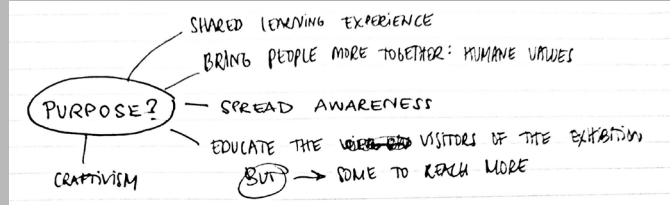 SHARED LEARNING EXPERIENCE
BRING PEOPLE MORE TOGETHER: HUMANE VALUES
PURPOSE? — SPREAD AWARENESS
EDUCATE THE VISITORS OF THE EXHIBITION
BUT → SOME TO REACH MORE
CRAFTIVISM